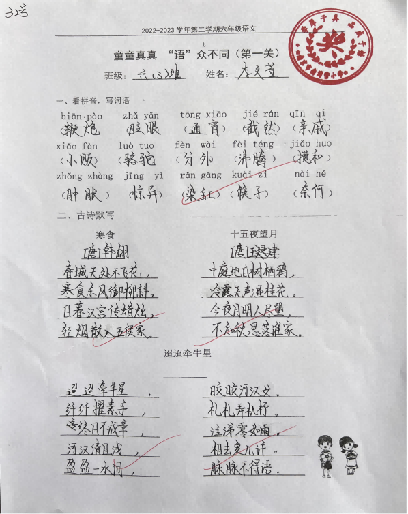 32号
2022-2023学年第二学期六年级语文
童童真真 “语”众不同（第一关）
班级： 姓名：
一、看拼音，写词语
biān pào zhǎ yǎn tōng xiāo jié rán qīn qi
（鞭炮）（眨眼）（通宵）（截然）（亲戚）
xiǎo fàn luò tuo fèn wài fèi téng jiǎo huo
（小贩）（骆驼）（分外）（沸腾）（搅和）
zhǒng zhàng jīng yì rǎn gāng kuài zi nài hé
（肿胀）（惊异）（染缸）（筷子）（奈何）
二、古诗默写
寒食 十五夜望月
[唐]韩翃 [唐]王建
春城无处不飞花， 中庭地白树栖鸦，
寒食东风御柳斜。 冷露无声湿桂花。
日暮汉宫传蜡烛， 今夜月明人尽望，
轻烟散入五侯家。 不知秋思落谁家。
迢迢牵牛星
迢迢牵牛星， 皎皎河汉女。
纤纤擢素手， 札札弄机杼。
终日不成章， 泣涕零如雨。
河汉清且浅， 相去复几许
盈盈一水间， 脉脉不得语。